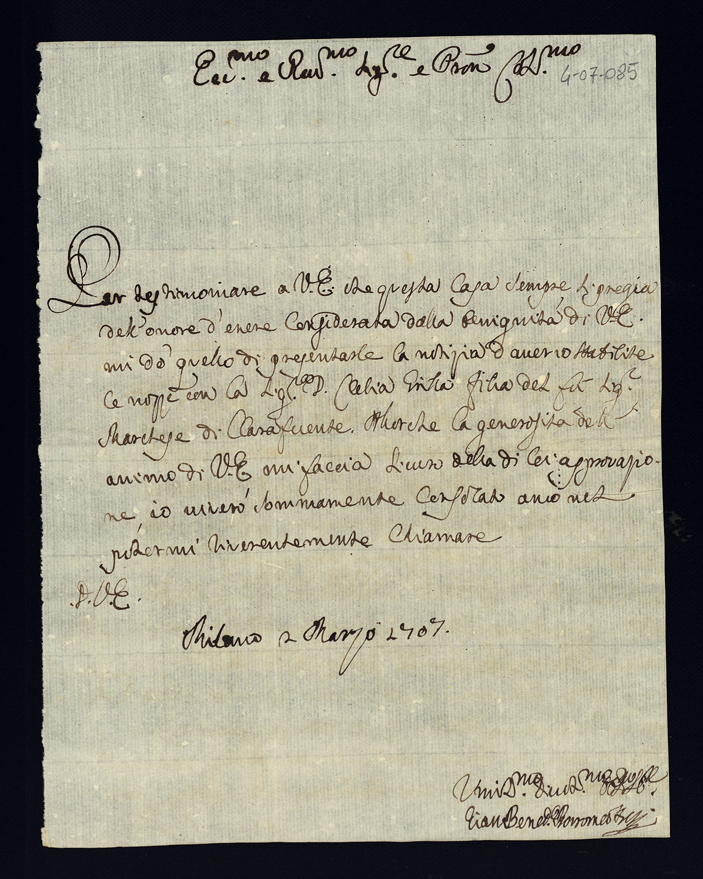 Ecc.mo e Rev.mo Sig.re e Pron Col.mo
4-07-085
Per testimoniare a V.E. che questa Casa sempre si pregia
dell'onore d'essere Considerata dalla benignità di V.E.
mi dò quello di presentarle la notizia d'auer io stabilite
le nozze con la Sig.ra D. Clelia figlia del fù Sig.r
Marchese di Clarafuente. Allorche la generosità dell'
animo di V.E. mi faccia sicuro della di lei approvazio-
ne, io uiuerò sommamente Consolato anco nel
potermi riuerentemente Chiamare
.D.V.E.
Milano 2 Marzo 1707.
Umil.mo diuot.mo
Gian Bened.o Borromeo